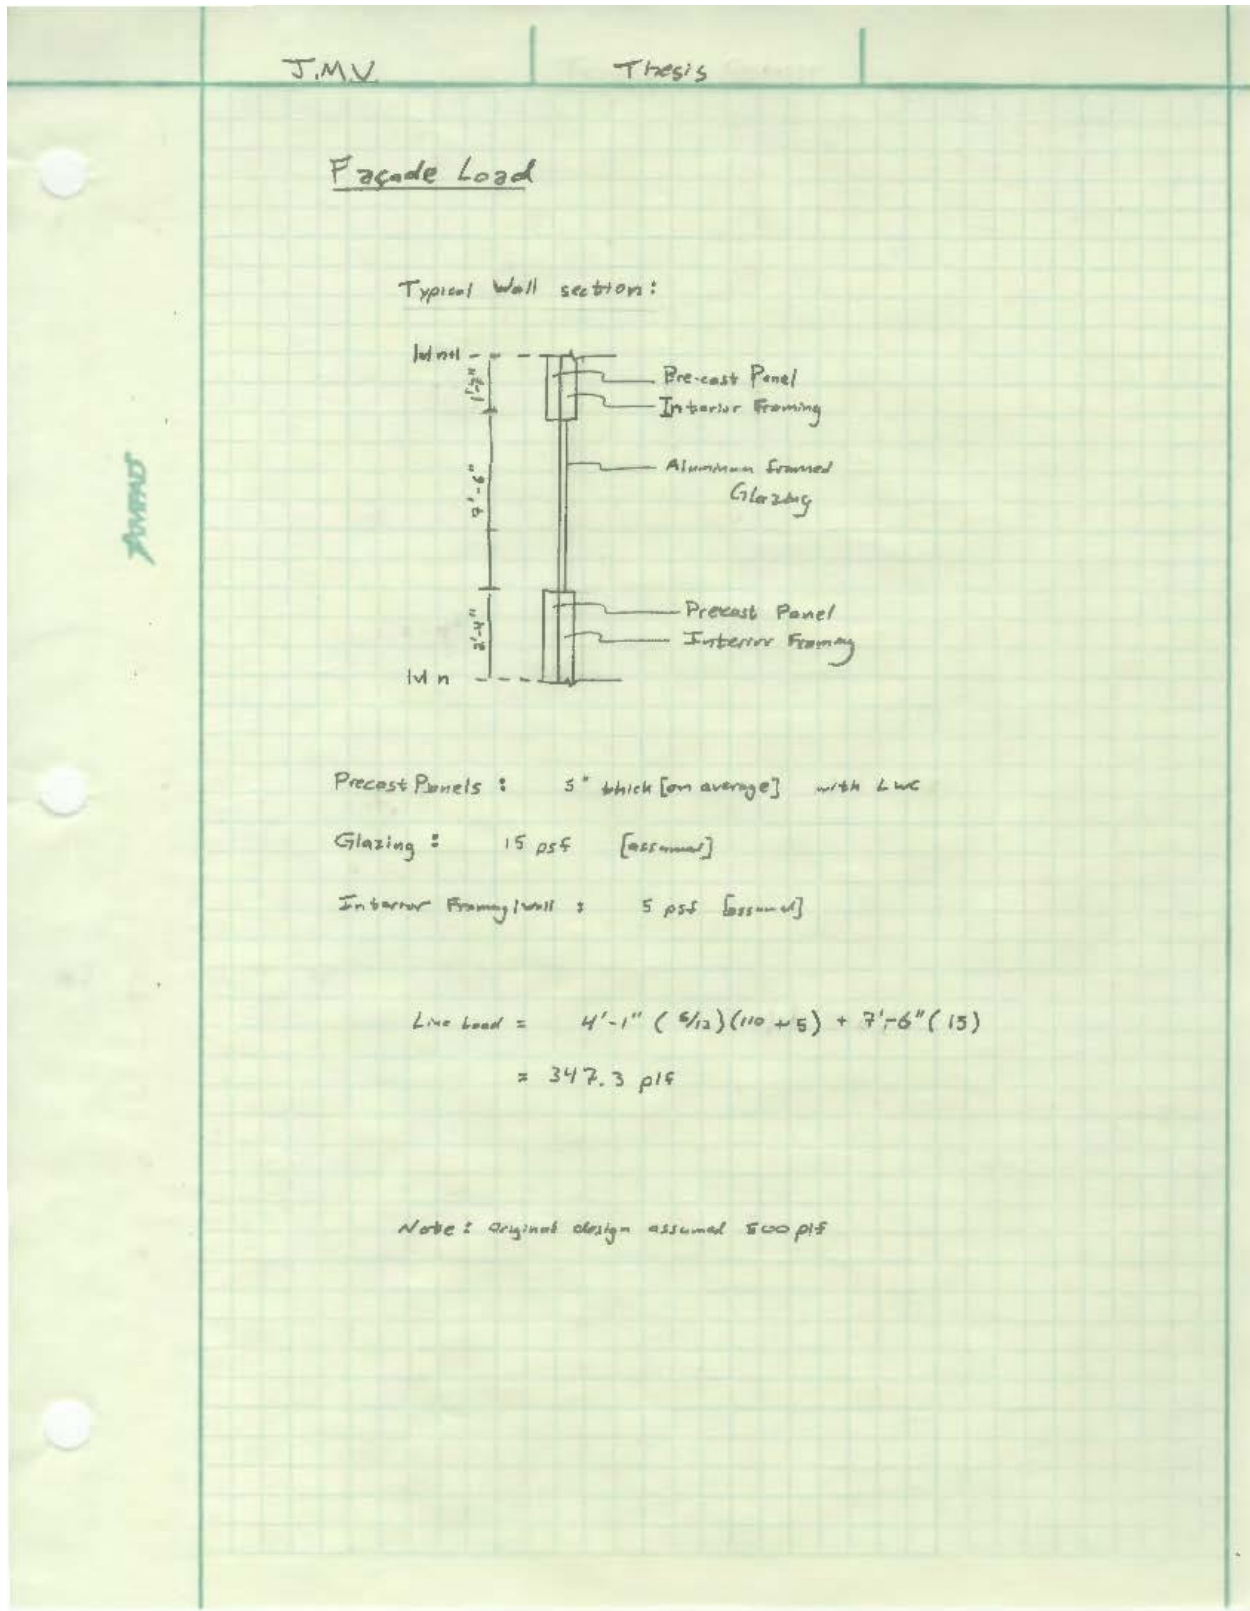 J.M.V. Thesis
Façade Load
Typical Wall section:
lvl n+1
1'-7"
Pre-cast Panel
Interior Framing
7'-6"
Aluminum framed
Glazing
AMPAD
Precast Panel
Interior Framing
lvl n
Precast Panels : 5" thick [on average] with LWC
Glazing : 15 psf [assumed]
Interior Framing/wall : 5 psf [assumed]
Line Load = 4'-1" (5/12)(110 + 5) + 7'-6" (15)
= 347.3 plf
Note: Original design assumed 500 plf